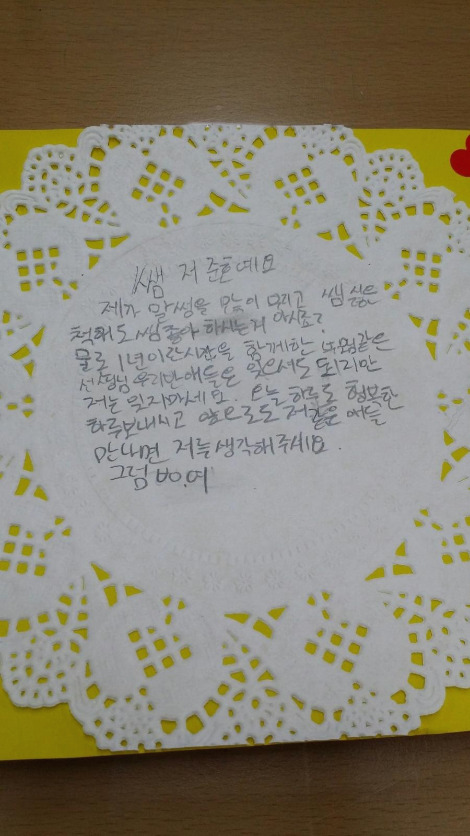 쌤 저 준호예요
제가 말썽을 많이 부리고 쌤 싫은
척해도 쌤 좋아 하시는거 아시죠?
물로 1년이란시간을 함께한
선생님 우리반애들은 잊으셔도 되지만
저는 잊지마세요. 오늘 하루도 행복한
하루보내시고 앞으로도 저같은 애들
만나면 저를 생각해주세요.
그럼 bb.여